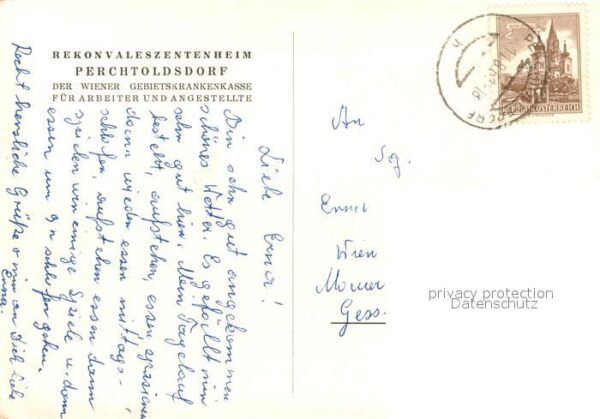 REKONVALESZENTENHEIM
PERCHTOLDSDORF
DER WIENER GEBIETSKRANKENKASSE
FÜR ARBEITER UND ANGESTELLTE
Liebe Erna!
Bin sehr gut angekommen
schönes Wetter. Es gefällt mir
sehr gut hier. Mein Tageslauf
besteht, aufstehen, essen, spazieren
dann wieder essen mittags-
schlafen, aufstehen essen dann
spielen wir einige Spiele u. dann
essen um 9h schlafen gehen.
Recht herzliche Grüße von an Dich liebe
Erna.
An
Erna
Wien
Gess
REPUBLIK ÖSTERREICH
privacy protection
Datenschutz